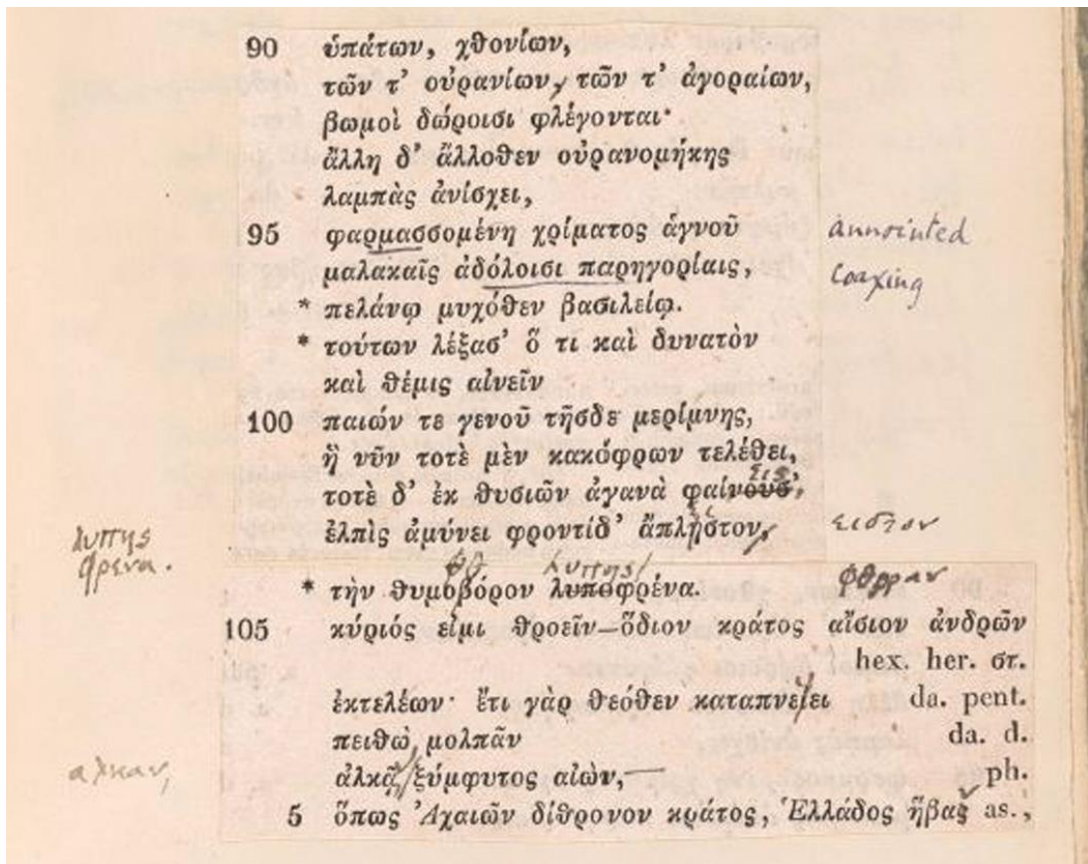 90 ὑπάτων, χθονίων,
τῶν τ' οὐρανίων, τῶν τ' ἀγοραίων,
βωμοὶ δώροισι φλέγονται·
ἄλλη δ' ἄλλοθεν οὐρανομήκης
λαμπὰς ἀνίσχει,
95 φαρμασσομένη χρίματος ἁγνοῦ annointed
μαλακαῖς ἀδόλοισι παρηγορίαις, coaxing
* πελάνῳ μυχόθεν βασιλείῳ.
* τούτων λέξασ' ὅ τι καὶ δυνατὸν
καὶ θέμις αἰνεῖν
100 παιών τε γενοῦ τῆσδε μερίμνης,
ἣ νῦν τοτὲ μὲν κακόφρων τελέθει,
εις
τοτὲ δ' ἐκ θυσιῶν ἀγανὰ φαίνουσ',
ἐλπὶς ἀμύνει φροντίδ' ἄπληστον, ειστον
λυπης
φρενα.
φθ λυπης
* τὴν θυμοβόρον λυποφρένα. φθοραν
105 κύριός εἰμι θροεῖν—ὅδιον κράτος αἴσιον ἀνδρῶν
hex. her. στ.
ἐκτελέων· ἔτι γὰρ θεόθεν καταπνείει da. pent.
πειθὼ μολπᾶν da. d.
αλκαν, ἀλκᾷ ξύμφυτος αἰών, ph.
5 ὅπως Ἀχαιῶν δίθρονον κράτος, Ἑλλάδος ἥβας as.,